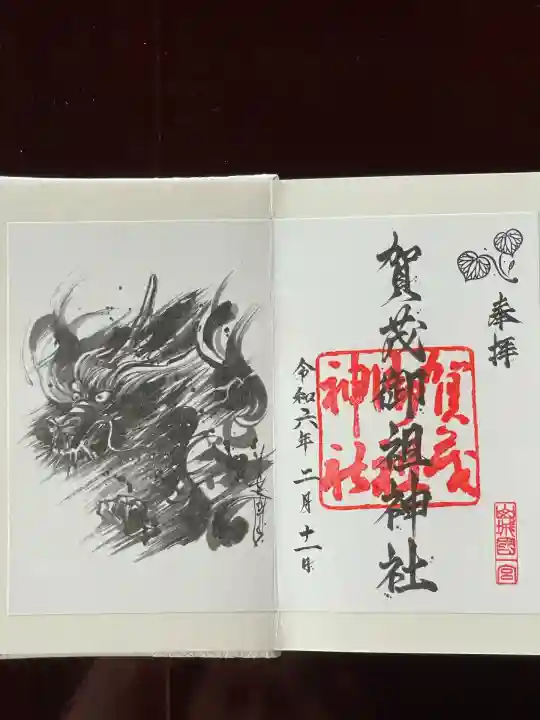 奉拝
賀茂御祖神社
賀茂
御祖
神社
山城國一宮
令和六年 二月 十一日